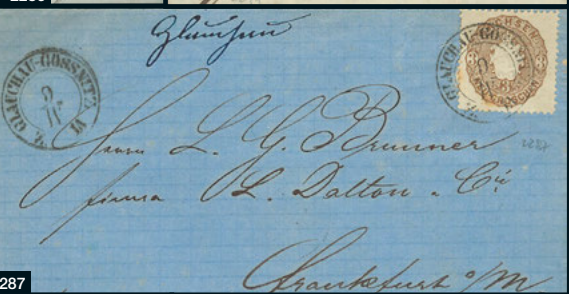 Glauchau
Z. GLAUCHAU-GÖSSNITZ
9
11
VI
Z. GLAUCHAU-GÖSSNITZ
9
SACHSEN
3
3
Herrn L. G. Brunner
firma L. Dalton & Cie
Frankfurt a/M
287